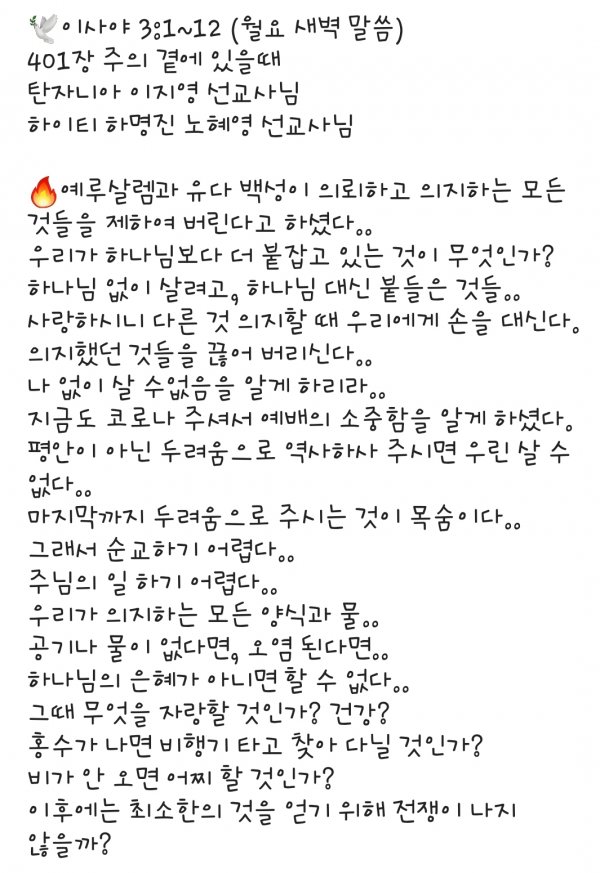 🕊이사야 3:1~12 (월요 새벽 말씀)
401장 주의 곁에 있을때
탄자니아 이지영 선교사님
하이티 하명진 노혜영 선교사님
🔥예루살렘과 유다 백성이 의뢰하고 의지하는 모든
것들을 제하여 버린다고 하셨다..
우리가 하나님보다 더 붙잡고 있는 것이 무엇인가?
하나님 없이 살려고, 하나님 대신 붙들은 것들..
사랑하시니 다른 것 의지할 때 우리에게 손을 대신다.
의지했던 것들을 끊어 버리신다..
나 없이 살 수없음을 알게 하리라..
지금도 코로나 주셔서 예배의 소중함을 알게 하셨다.
평안이 아닌 두려움으로 역사하사 주시면 우린 살 수
없다..
마지막까지 두려움으로 주시는 것이 목숨이다..
그래서 순교하기 어렵다..
주님의 일 하기 어렵다..
우리가 의지하는 모든 양식과 물..
공기나 물이 없다면, 오염 된다면..
하나님의 은혜가 아니면 할 수 없다..
그때 무엇을 자랑할 것인가? 건강?
홍수가 나면 비행기 타고 찾아 다닐 것인가?
비가 안 오면 어찌 할 것인가?
이후에는 최소한의 것을 얻기 위해 전쟁이 나지
않을까?